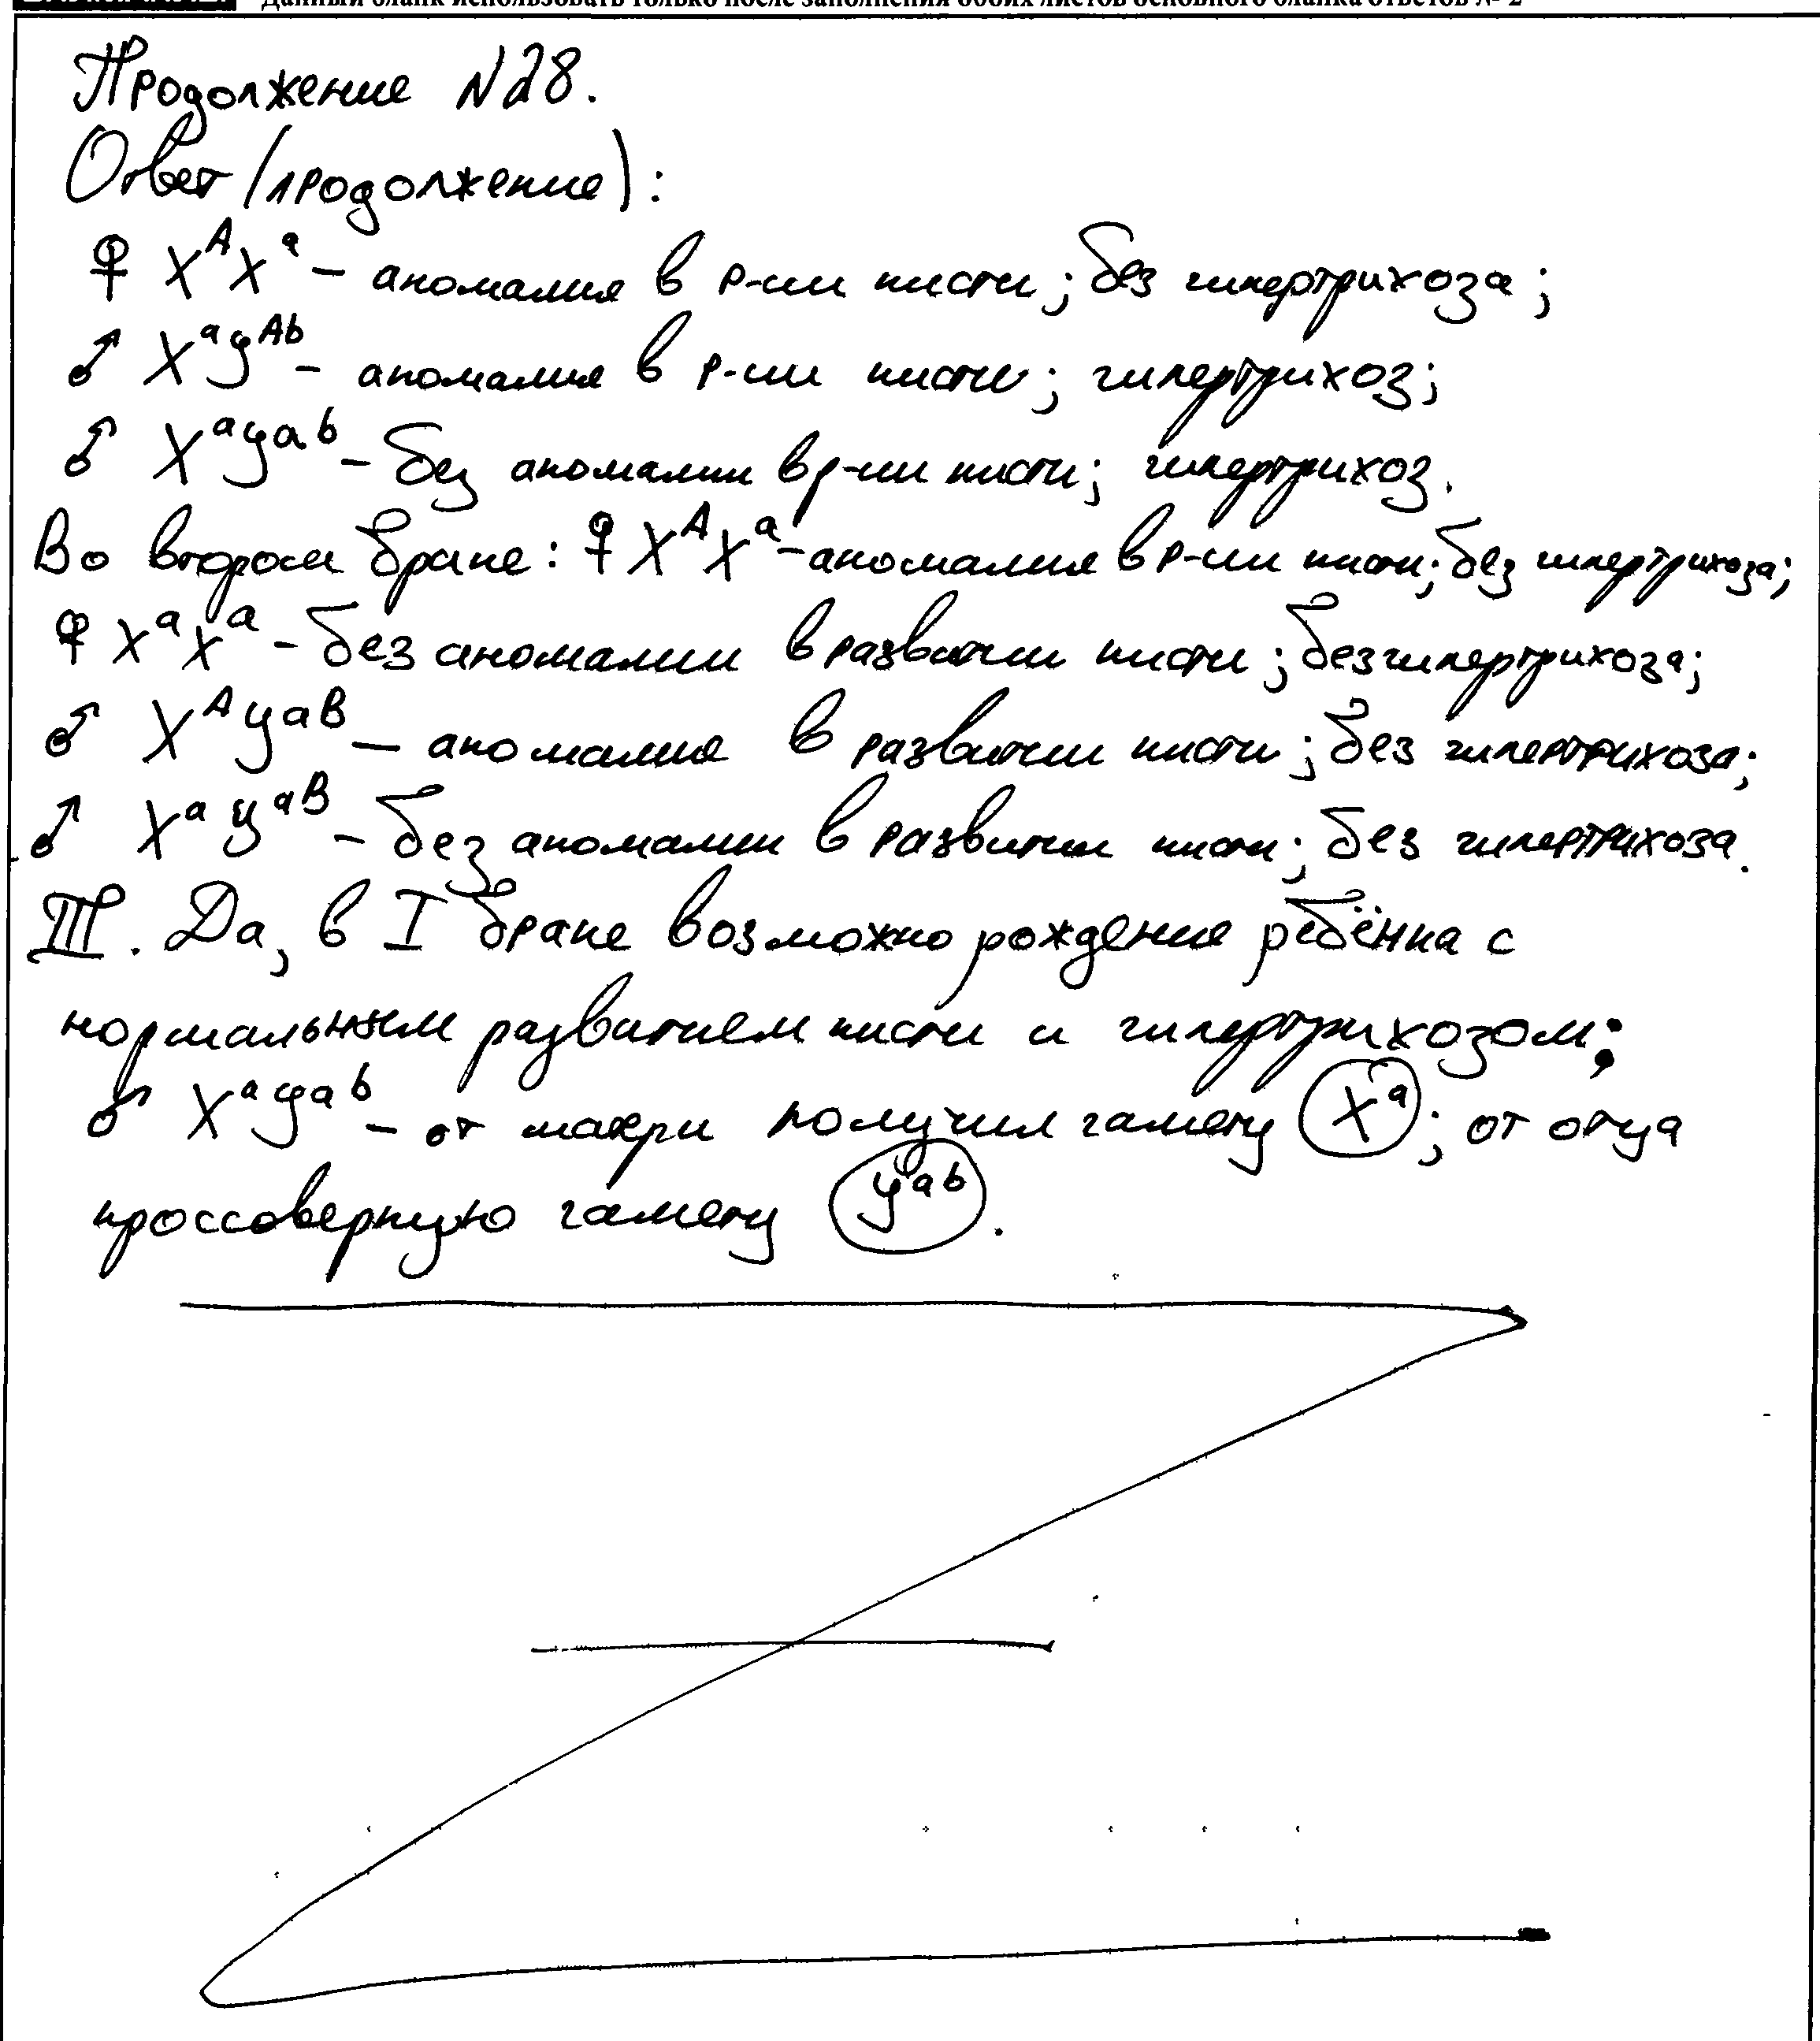 Данный бланк использовать только после заполнения обоих листов основного бланка ответов № 2
Продолжение N28.
Ответ (продолжение):
♀ XᴬXᵃ – аномалия в р-ии кисти; без гипертрихоза;
♂ XᵃYᴬᵇ – аномалия в р-ии кисти; гипертрихоз;
♂ XᵃYᵃᵇ – без аномалии в р-ии кисти; гипертрихоз.
Во втором браке: ♀ XᴬXᵃ – аномалия в р-ии кисти; без гипертрихоза;
♀ XᵃXᵃ – без аномалии в развитии кисти; без гипертрихоза;
♂ XᴬYᵃᴮ – аномалия в развитии кисти; без гипертрихоза;
♂ XᵃYᵃᴮ – без аномалии в развитии кисти; без гипертрихоза.
III. Да, в I браке возможно рождение ребёнка с
нормальным развитием кисти и гипертрихозом:
♂ XᵃYᵃᵇ – от матери получил гамету Xᵃ; от отца
кроссоверную гамету Yᵃᵇ.